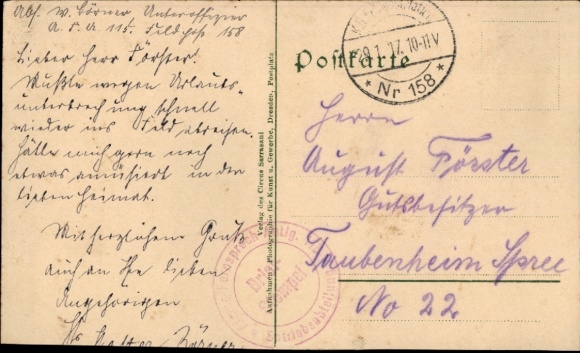 Abs. W. Börner Unteroffizier
A. F. A. 115. Feldpost 158
Lieber Herr Förster!
Mußte wegen Urlaubs-
unterbrechung schnell
wieder ins Feld abreisen.
Hätte mich gern noch
etwas amüsiert in der
lieben Heimat.
Mit herzlichem Gruß
auch an Ihre lieben
Angehörigen
Ihr Walter Börner
Verlag des Circus Sarrasani
Aufnahmen: Photographie für Kunst u. Gewerbe, Dresden, Postplatz
Postkarte
29.1.17. 10-11V
* Nr 158 *
Herrn
August Förster
Gutsbesitzer
Taubenheim Spree
No 22
Brief
Stempel